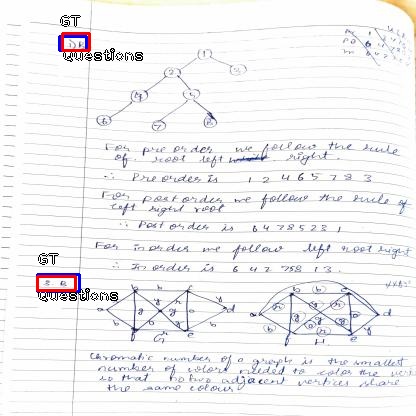 GT
Questions
1
2
3
4
5
6
7
8
For preorder we follow the rule
of root left right.
∴ Preorder is 1 2 4 6 5 7 8 3
For postorder we follow the rule of
left right root
∴ Post order is 6 4 7 8 5 2 3 1
For inorder we follow left root right
∴ In order is 6 4 2 7 5 8 1 3.
GT
Questions
a b c d e f
G
a b c d e f
H
Chromatic number of a graph is the smallest
number of colors needed to color the
so that no two adjacent vertices share
the same colour